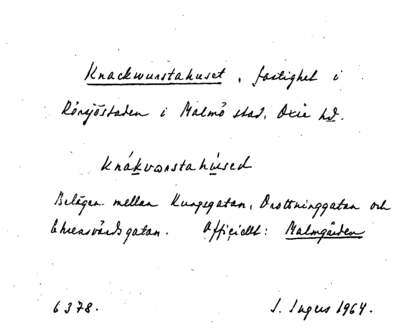 Knackwurstahuset, fastighet i
Rörsjöstaden i Malmö stad, Oxie hd.
knákvorstahúsed
Belägen mellan Kungsgatan, Drottninggatan och
Ehrensvärdsgatan. Officiellt: Malmgården
6378. J. Ingers 1964.